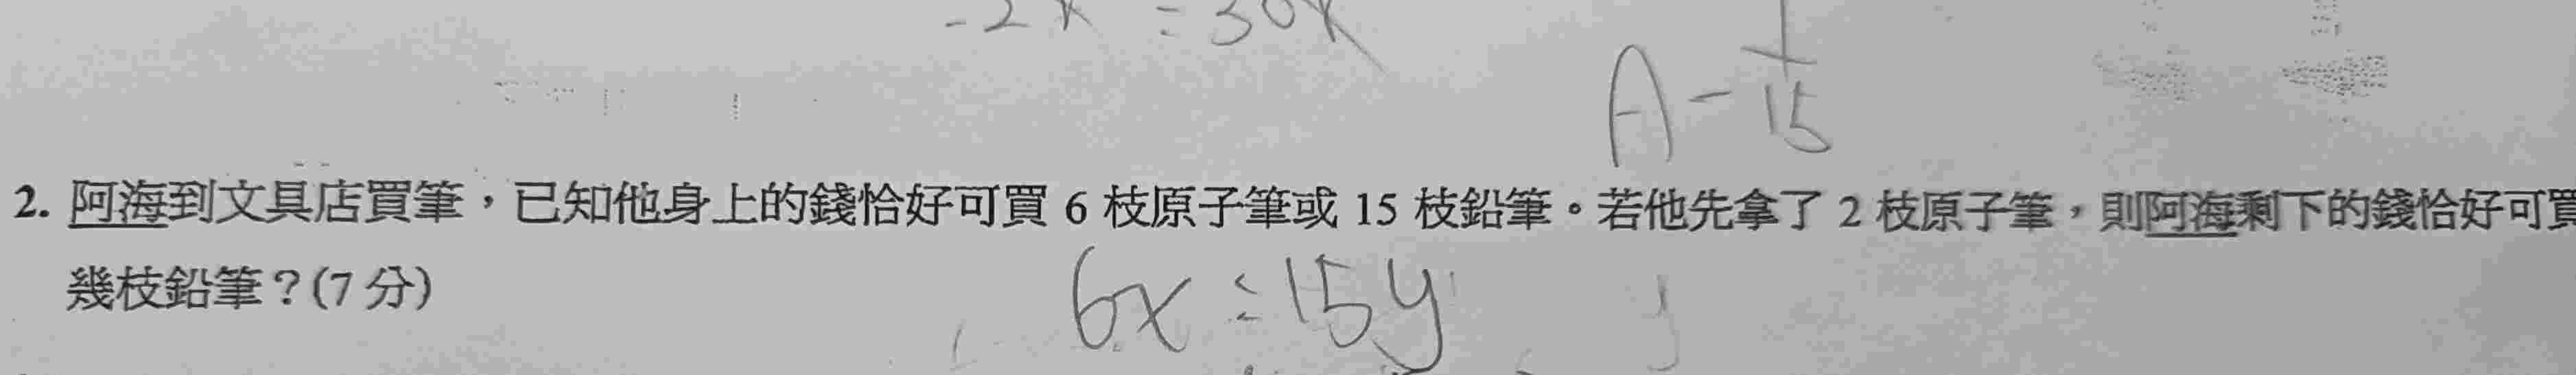 -2x = 30x
A - 1/15
2. 阿海到文具店買筆，已知他身上的錢恰好可買 6 枝原子筆或 15 枝鉛筆。若他先拿了 2 枝原子筆，則阿海剩下的錢恰好可買
幾枝鉛筆？(7 分)
6x = 15y